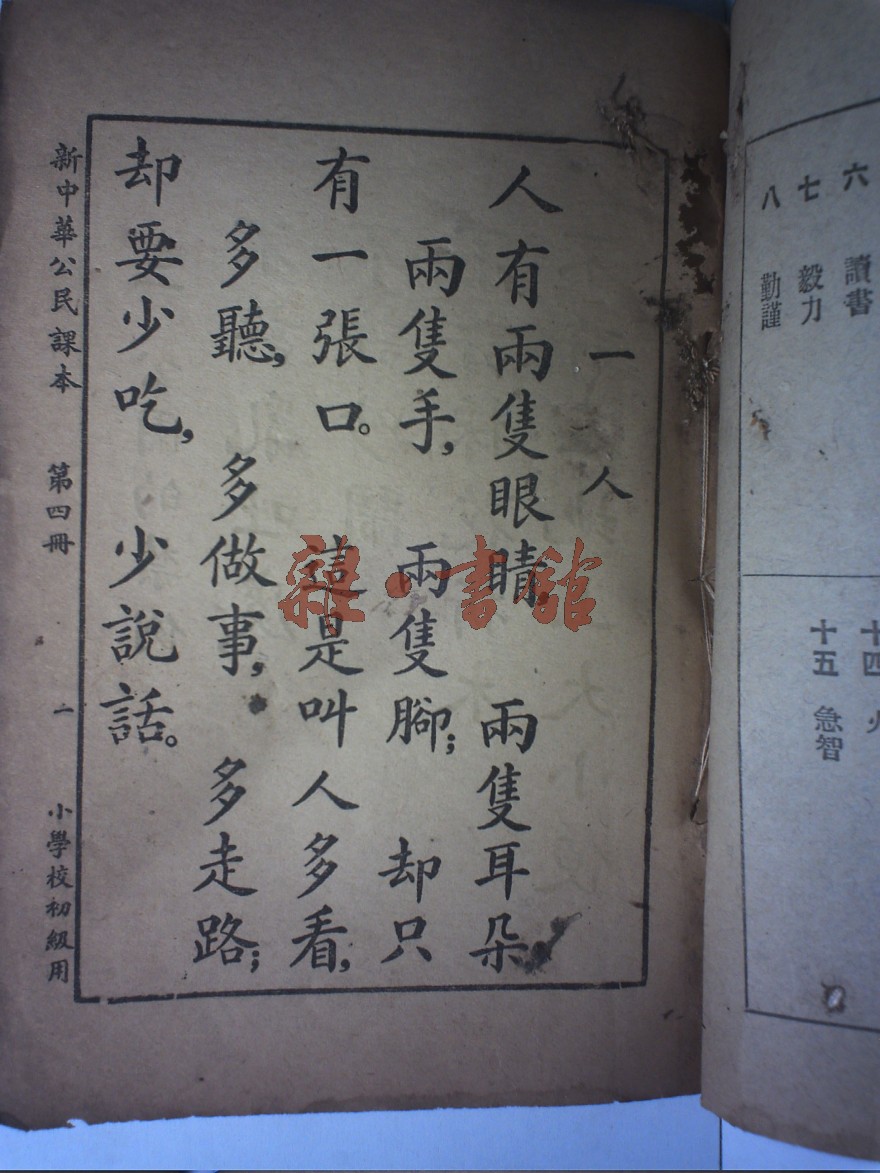 六 讀書
七 毅力
八 勤謹
十四
十五 急智
一 人
人有兩隻眼睛,兩隻耳朵,
兩隻手,兩隻腳;却只
有一張口。這是叫人多看,
多聽,多做事,多走路;
却要少吃,少說話。
新中華公民課本 第四冊 一 小學校初級用
雜·書館